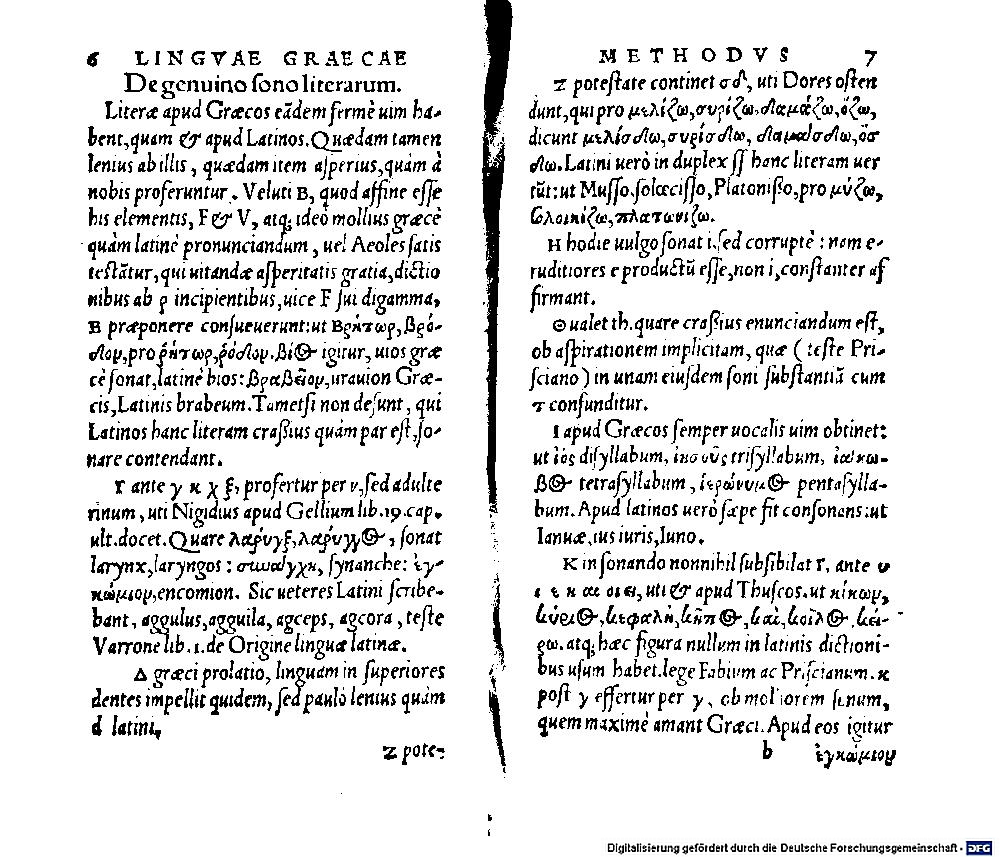 6 LINGVAE GRAECAE
De genuino sono literarum.
Literæ apud Græcos eãdem fermè uim ha-
bent, quam & apud Latinos. Quædam tamen
lenius ab illis, quædam item asperius, quàm à
nobis proferuntur. Veluti B, quod affine esse
his elementis, F & V, atq; ideò mollius græcè
quàm latinè pronunciandum, uel Aeoles satis
testãtur, qui uitandæ asperitatis gratia, dictio
nibus ab ρ incipientibus, uice F sui digamma,
B præponere consueuerunt: ut Βρήτωρ, βρό-
δον, pro ῥήτωρ, ῥόδον. βίος igitur, uios græ
cè sonat, latinè bios: βραβεῖον, urauion Græ-
cis, Latinis brabeum. Tametsi non desunt, qui
Latinos hanc literam craßius quàm par est, so-
nare contendant.
Γ ante γ κ χ ξ, profertur per ν, sed adulte
rinum, uti Nigidius apud Gellium lib. 19. cap.
ult. docet. Quare λαρύγξ, λαρύγγος, sonat
larynx, laryngos: συνάγχη, synanche: ἐγ-
κώμιον, encomion. Sic ueteres Latini scribe-
bant, aggulus, agguila, agceps, agcora, teste
Varrone lib. 1. de Origine linguæ latinæ.
Δ græci prolatio, linguam in superiores
dentes impellit quidem, sed paulò lenius quàm
d latini.
Z pote-
METHODVS 7
Z potestate continet σδ, uti Dores osten
dunt, qui pro μελίζω, συρίζω, δαμάζω, ὄζω,
dicunt μελίσδω, συρίσδω, δαμάσδω, ὄσ
δω. Latini uerò in duplex ss hanc literam uer
tũt: ut Musso, solœcisso, Platonißo, pro μύζω,
σολοικίζω, πλατωνίζω.
H hodie uulgo sonat i, sed corruptè: nam e-
ruditiores e productũ esse, non i, constanter af
firmant.
Θ ualet th. quare craßius enunciandum est,
ob aspirationem implicitam, quæ (teste Pri-
sciano) in unam eiusdem soni substantiã cum
τ confunditur.
I apud Græcos semper uocalis uim obtinet:
ut ἰός disyllabum, ἰησοῦς trisyllabum, ἰάκω-
βος tetrasyllabum, ἱερώνυμος pentasylla-
bum. Apud latinos uerò sæpe fit consonans: ut
Ianuæ, ius iuris, Iuno.
K in sonando nonnihil subsibilat Γ, ante υ
ι ε η αι οι ει, uti & apud Thuscos. ut κήκων,
κύριος, κεφαλή, κῆπος, καὶ, κοῖλος, κεί-
ρω. atq; hæc figura nullum in latinis dictioni-
bus usum habet. lege Fabium ac Priscianum. κ
post γ effertur per γ, ob molliorem sonum,
quem maximè amant Græci. Apud eos igitur
b ἐγκώμιον
Digitalisierung gefördert durch die Deutsche Forschungsgemeinschaft - DFG